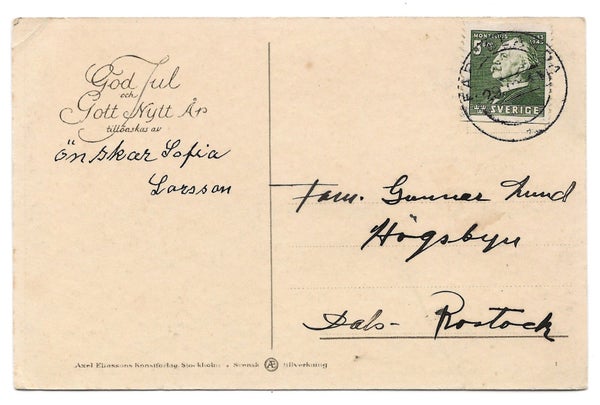 God Jul
och
Gott Nytt År
tillönskas av
önskar Sofia
Larsson
MONTELIUS
5 ÖRE
1843
1943
SVERIGE
Fam. Gunnar Lund
Högsbyn
Dals-Rostock
Axel Eliassons Konstförlag, Stockholm • Svensk Æ tillverkning